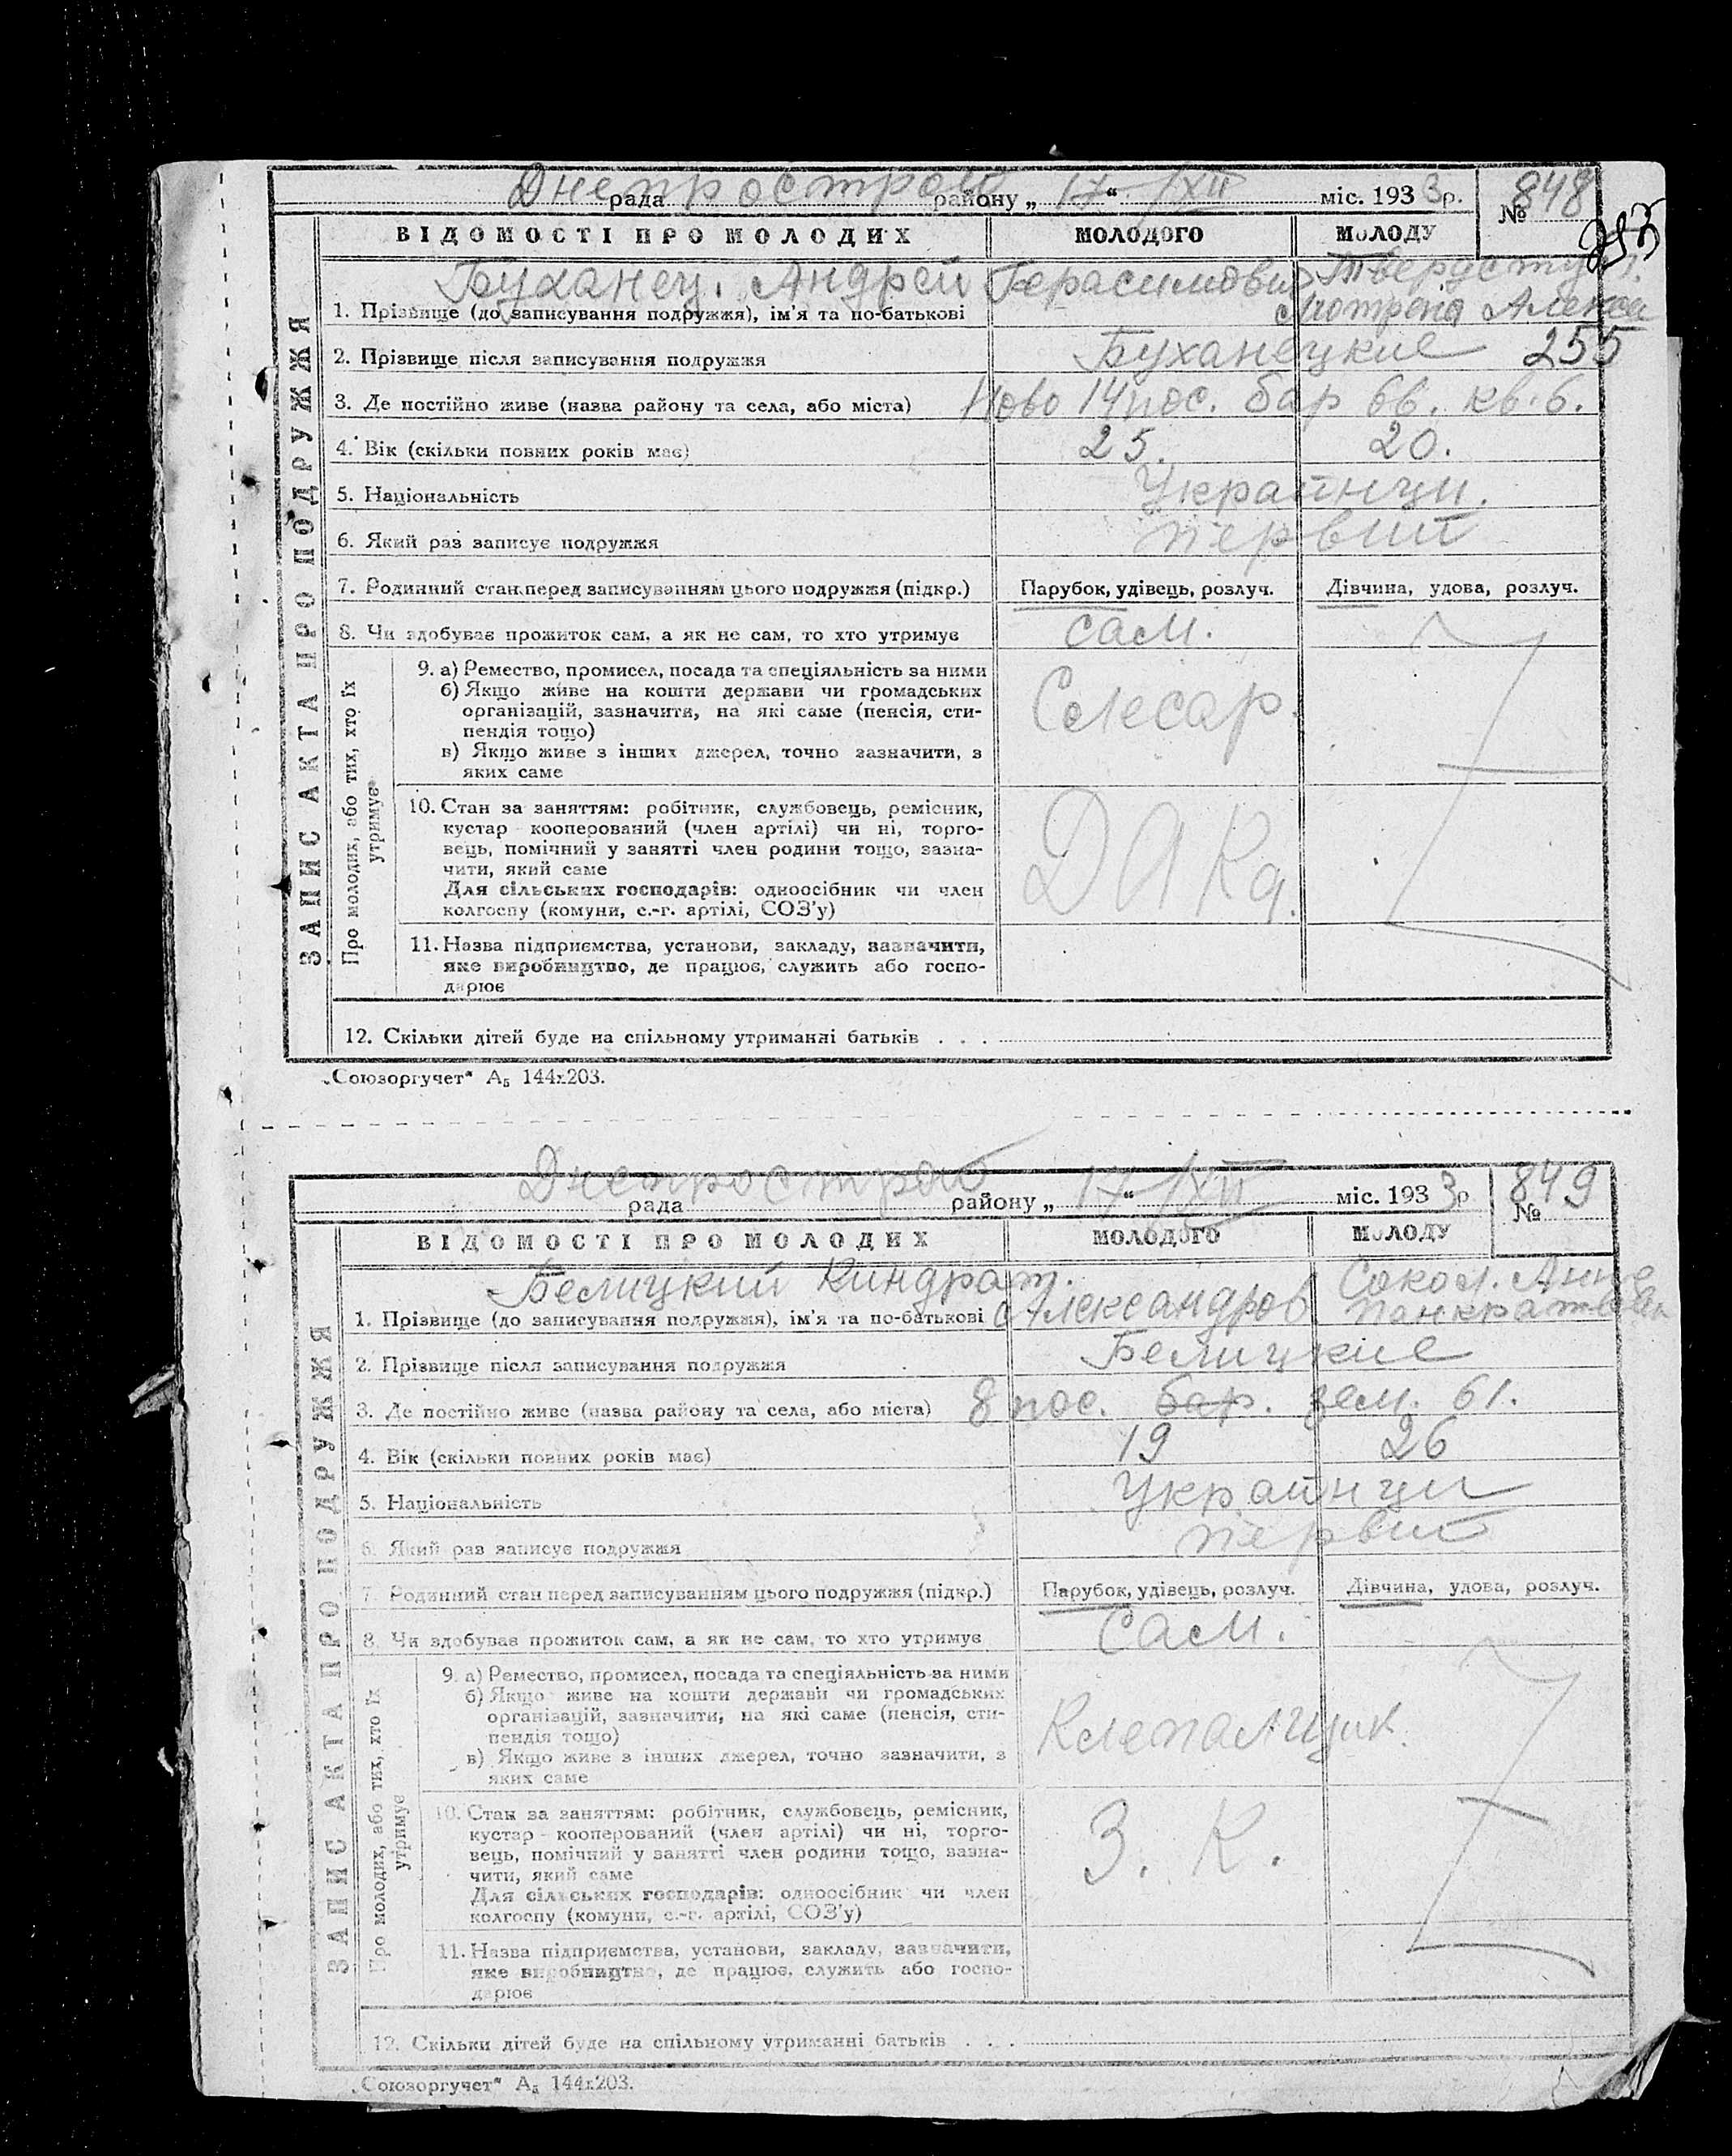 Днепрострою
рада району „ 17 “ /XII міс. 1933р. № 848
ВІДОМОСТІ ПРО МОЛОДИХ МОЛОДОГО МОЛОДУ
253
ЗАПИС АКТА ПРО ПОДРУЖЖЯ
Буханец. Андрей Герасимович
1. Прізвище (до записування подружжя), ім'я та по-батькові Мотрена Алексе
2. Прізвище після записування подружжя Буханецкие 255
3. Де постійно живе (назва району та села, або міста) Ново 14 пос. бар 6в. кв. 6.
4. Вік (скільки повних років має) 25. 20.
5. Національність Украинци.
6. Який раз записує подружжя первий
7. Родинний стан перед записуванням цього подружжя (підкр.) Парубок, удівець, розлуч. Дівчина, удова, розлуч.
8. Чи здобуває прожиток сам, а як не сам, то хто утримує сам.
Про молодих, або тих, хто їх утримує
9. а) Ремество, промисел, посада та спеціяльність за ними
б) Якщо живе на кошти держави чи громадських
організацій, зазначити, на які саме (пенсія, сти-
пендія тощо)
в) Якщо живе з інших джерел, точно зазначити, з
яких саме
Слесар.
10. Стан за заняттям: робітник, службовець, ремісник,
кустар кооперований (член артілі) чи ні, торго-
вець, помічний у занятті член родини тощо, зазна-
чити, який саме
Для сільських господарів: одноосібник чи член
колгоспу (комуни, с.-г. артілі, СОЗ'у)
ДАКа.
11. Назва підприємства, установи, закладу, зазначити,
яке виробництво, де працює, служить або госпо-
дарює
12. Скільки дітей буде на спільному утриманні батьків . . .
„Союзоргучет“ А₅ 144х203.
Днепрострою
рада району „ 17 “ /XII міс. 1933р № 849
ВІДОМОСТІ ПРО МОЛОДИХ МОЛОДОГО МОЛОДУ
ЗАПИС АКТА ПРО ПОДРУЖЖЯ
Белицкий Киндрат. Сокол. Анна
1. Прізвище (до записування подружжя), ім'я та по-батькові Александров Панкратовн
2. Прізвище після записування подружжя Белицкие
3. Де постійно живе (назва району та села, або міста) 8 пос. бар. зем. 61.
4. Вік (скільки повних років має) 19 26
5. Національність Украинци
6. Який раз записує подружжя первий
7. Родинний стан перед записуванням цього подружжя (підкр.) Парубок, удівець, розлуч. Дівчина, удова, розлуч.
8. Чи здобуває прожиток сам, а як не сам, то хто утримує Сам.
Про молодих, або тих, хто їх утримує
9. а) Ремество, промисел, посада та спеціяльність за ними
б) Якщо живе на кошти держави чи громадських
організацій, зазначити, на які саме (пенсія, сти-
пендія тощо)
в) Якщо живе з інших джерел, точно зазначити, з
яких саме
Клепалщик.
10. Стан за заняттям: робітник, службовець, ремісник,
кустар кооперований (член артілі) чи ні, торго-
вець, помічний у занятті член родини тощо, зазна-
чити, який саме
Для сільських господарів: одноосібник чи член
колгоспу (комуни, с.-г. артілі, СОЗ'у)
З. К.
11. Назва підприємства, установи, закладу, зазначити,
яке виробництво, де працює, служить або госпо-
дарює
12. Скільки дітей буде на спільному утриманні батьків . . .
„Союзоргучет“ А₅ 144х203.